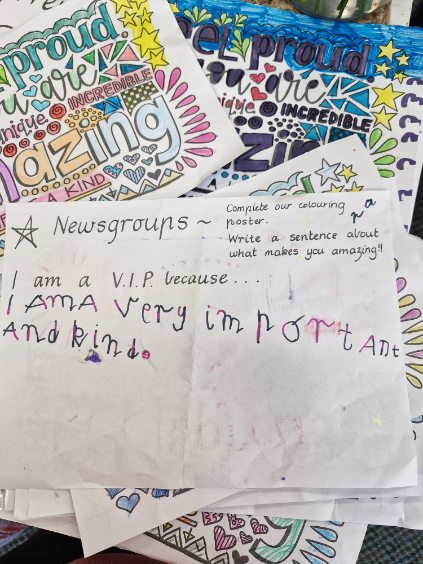 proud.
you are
unique
INCREDIBLE
amazing
A KIND
FEEL proud.
you are
unique
INCREDIBLE
☆ Newsgroups ~
Complete our colouring
poster.
Write a sentence about
what makes you amazing!!
I am a V.I.P because...
I AM A Very important
And kind.